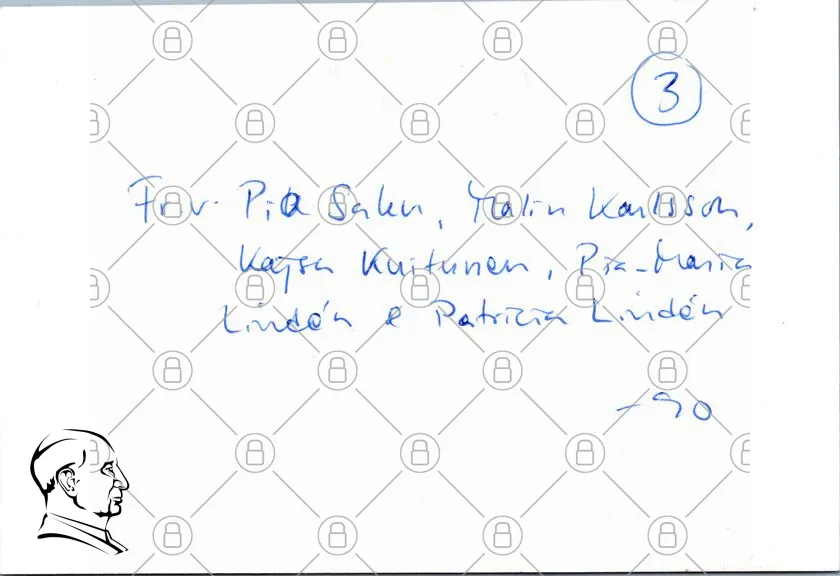 3
Fr.v. Pia Salen, Malin Karlsson,
Kajsa Kuitunen, Pia-Maria
Lindén & Patricia Lindén
-90